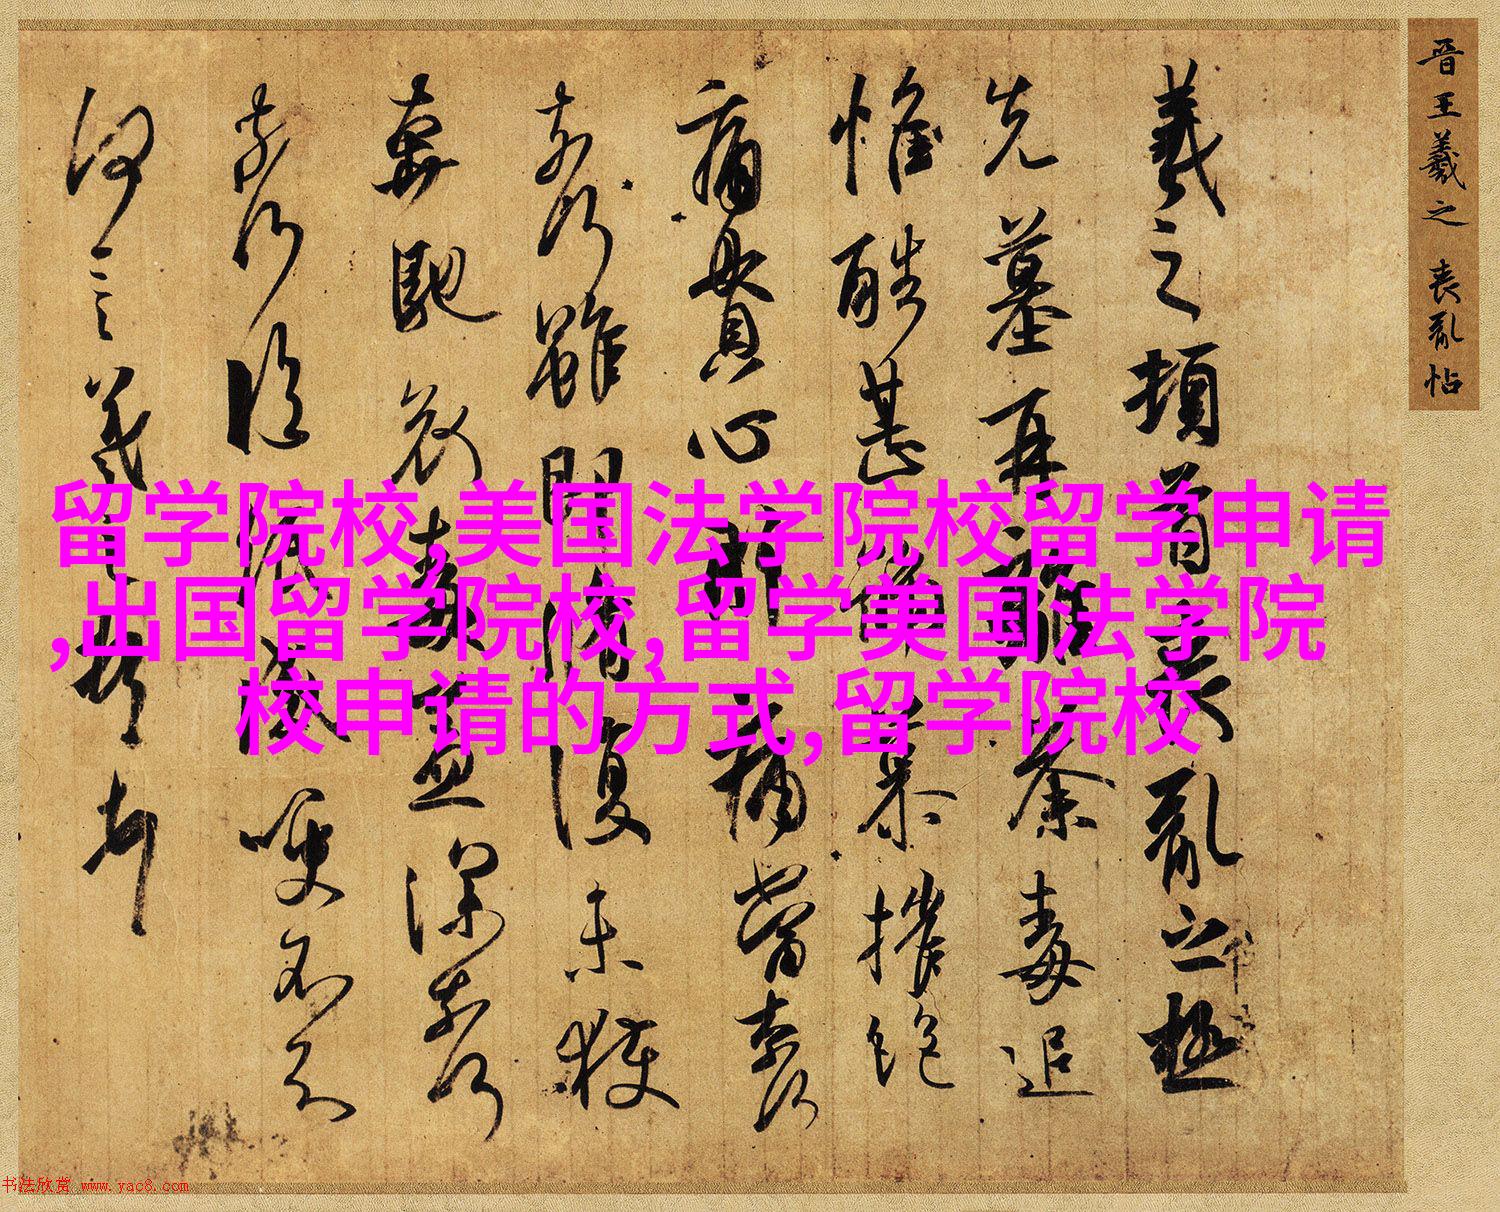 晋王羲之 喪亂帖
羲之頓首喪亂之極
先墓再離荼毒追
惟酷甚號慕摧絕
痛貫心肝痛當奈何
奈何雖即脩復未獲
奔馳哀毒益深奈何
奈何臨紙感哽不知
何言羲之頓首頓首
留学院校,美国法学院校留学申请
,出国留学院校,留学美国法学院
校申请的方式,留学院校
书法欣赏 www.yac8.com